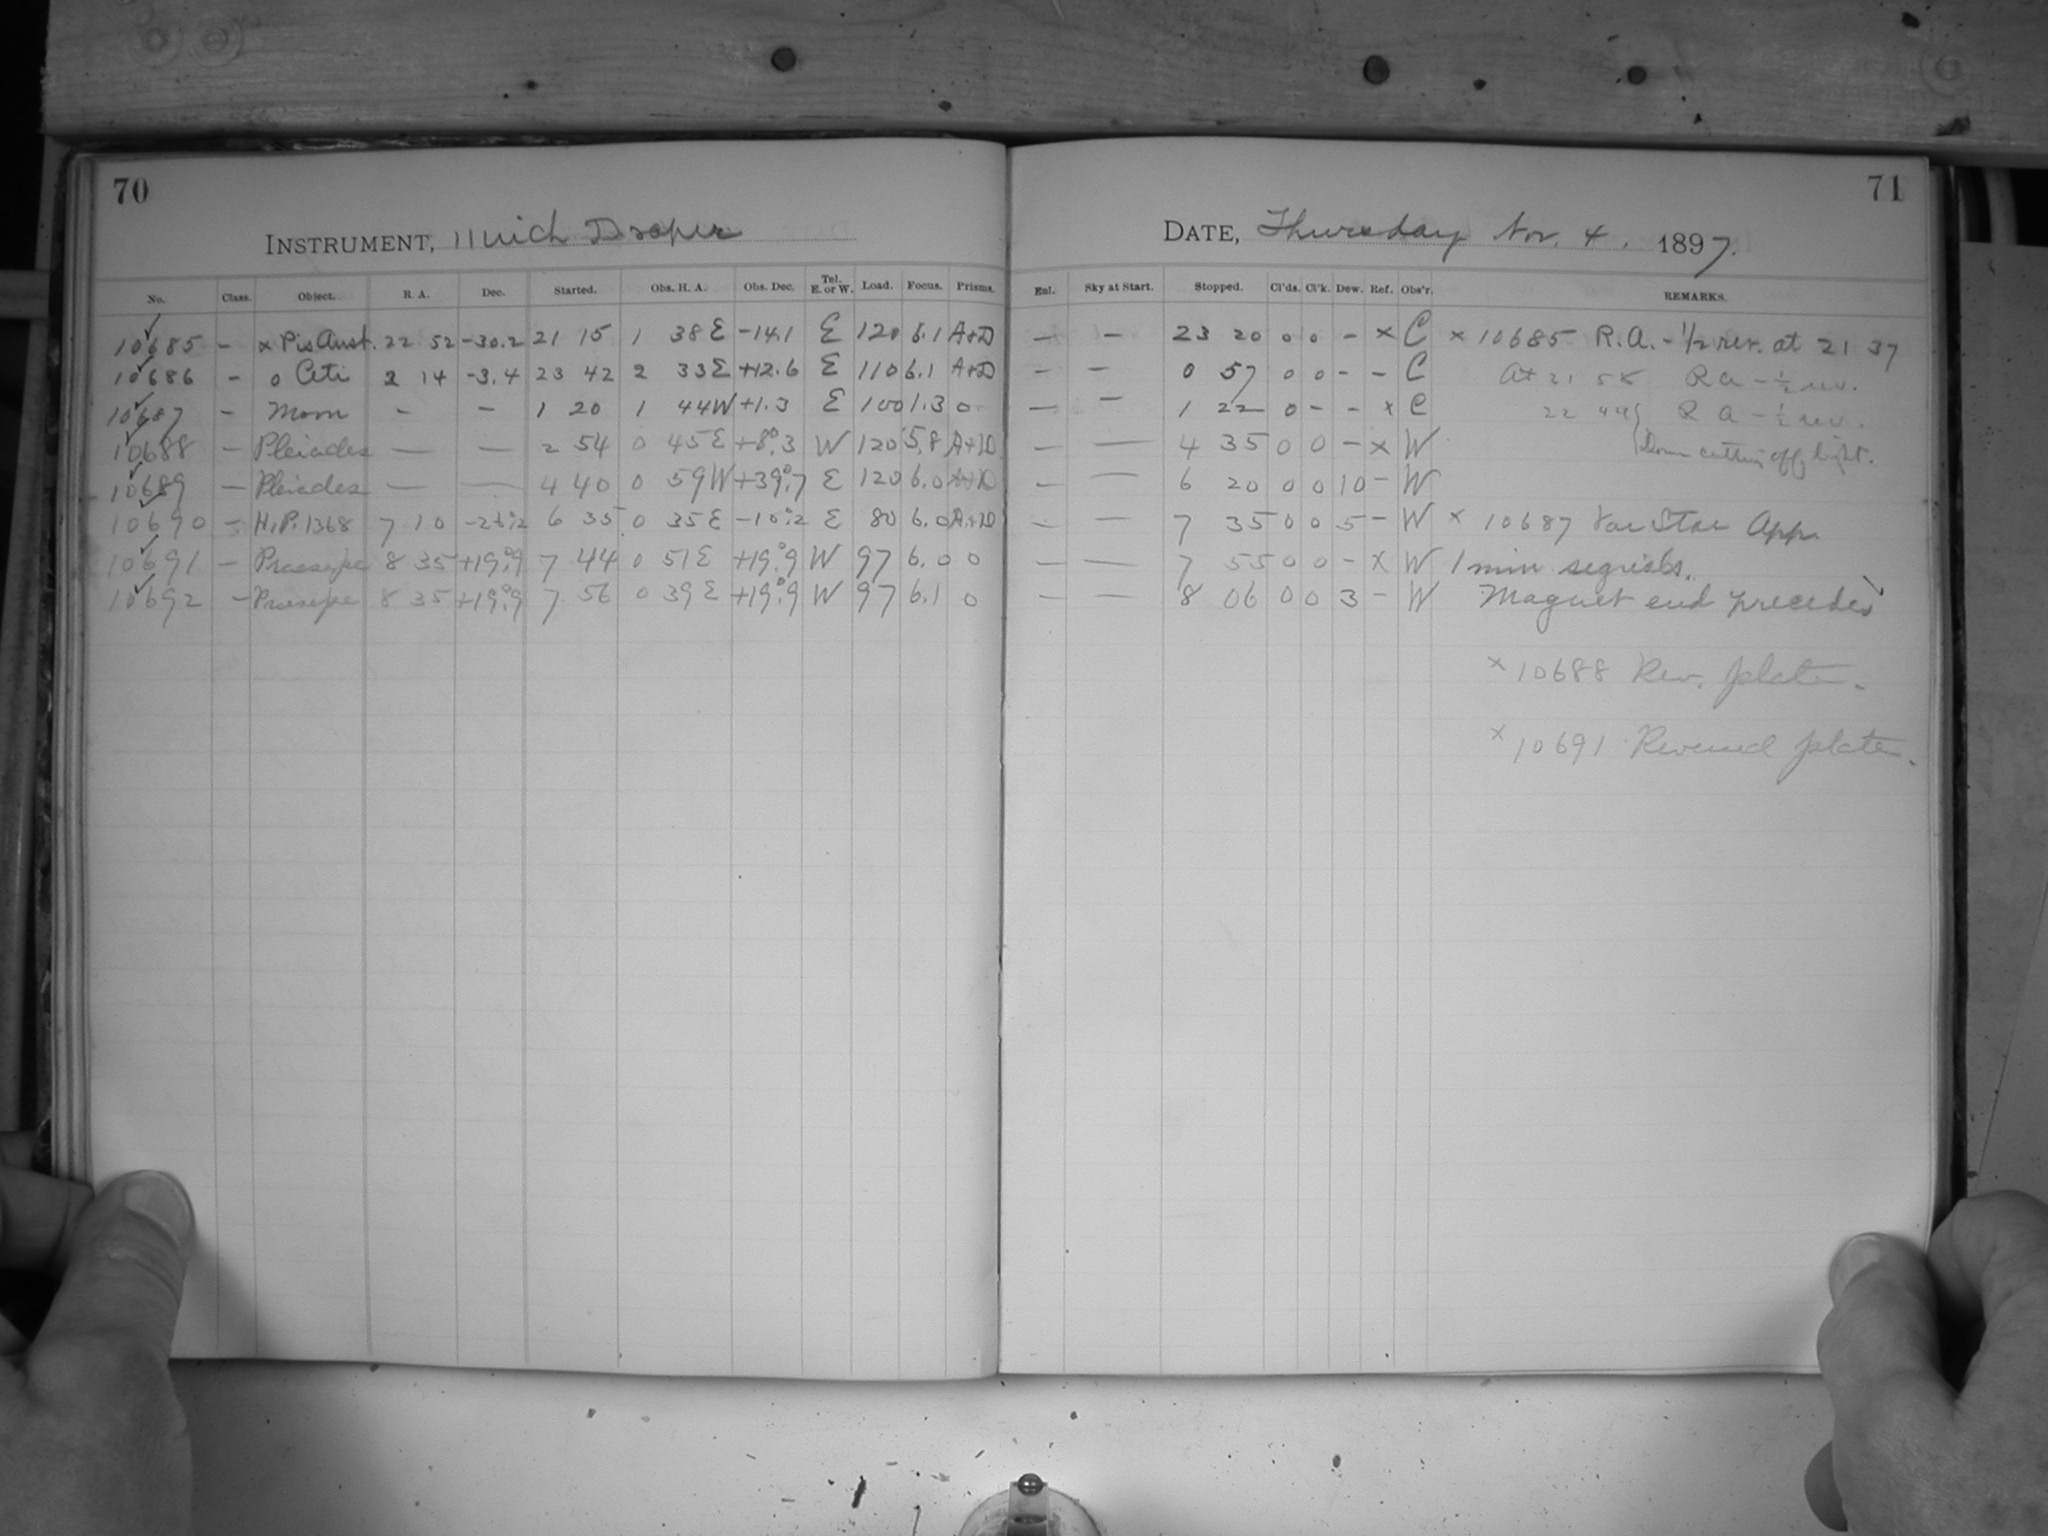 70
INSTRUMENT, 11 inch Draper
No. Class. Object. R. A. Dec. Started. Obs. H. A. Obs. Dec. Tel. E. or W. Load. Focus. Prisms.
10685 – x Pis Aust. 22 52 -30.2 21 15 1 38 E -14.1 E 120 6.1 A+D
10686 – o Ceti 2 14 -3.4 23 42 2 33 E +12.6 E 110 6.1 A+D
10687 – Moon – – 1 20 1 44 W +1.3 E 100 1.3 0
10688 – Pleiades — — 2 54 0 45 E +8°.3 W 120 5.8 A+D
10689 – Pleiades — — 4 40 0 59 W +39°.7 E 120 6.0 A+D
10690 – H.P. 1368 7 10 6 35 0 35 E E 80 6.0 A+D
10691 – Praesepe 8 35 +19°.9 7 44 0 51 E +19°.9 W 97 6.0 0
10692 – Praesepe 8 35 +19°.9 7 56 0 39 E +19°.9 W 97 6.1 0
71
DATE, Thursday Nov. 4. 1897.
Enl. Sky at Start. Stopped. Cl'ds. Cl'k. Dew. Ref. Obs'r. REMARKS.
– – 23 20 0 0 – x C x 10685 R.A. - 1/2 rev. at 21 37
– – 0 57 0 0 – – C At 21 58 R a - 1/2 rev.
– – 1 22 0 – – x C 22 44 R a - 1/2 rev.
– — 4 35 0 0 – x W cutting off light.
– – 6 20 0 0 10 – W
– — 7 35 0 0 5 – W x 10687 Var Star App.
– — 7 55 0 0 – x W 1 min
– — 8 06 0 0 3 – W Magnet end precedes
x 10688 Rev. plate.
x 10691 Reversed plate.